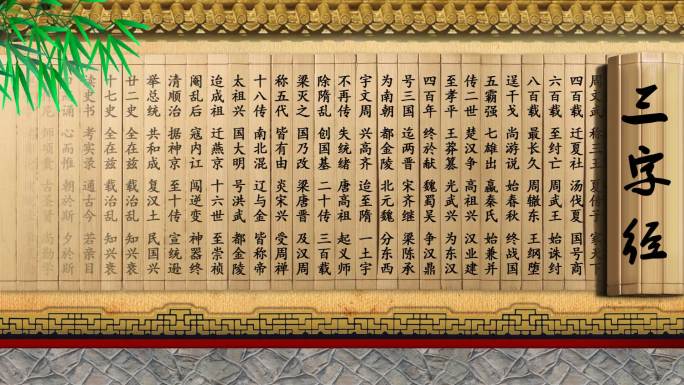 三字经
周文武 称三王 夏传子 家天下
四百载 迁夏社 汤伐夏 国号商
六百载 至纣亡 周武王 始诛纣
八百载 最长久 周辙东 王纲堕
逞干戈 尚游说 始春秋 终战国
五霸强 七雄出 嬴秦氏 始兼并
传二世 楚汉争 高祖兴 汉业建
至孝平 王莽篡 光武兴 为东汉
四百年 终於献 魏蜀吴 争汉鼎
号三国 迄两晋 宋齐继 梁陈承
为南朝 都金陵 北元魏 分东西
宇文周 兴高齐 迨至隋 一土宇
不再传 失统绪 唐高祖 起义师
除隋乱 创国基 二十传 三百载
梁灭之 国乃改 梁唐晋 及汉周
称五代 皆有由 炎宋兴 受周禅
十八传 南北混 辽与金 皆称帝
太祖兴 国大明 号洪武 都金陵
迨成祖 迁燕京 十六世 至崇祯
阉乱后 寇内讧 闯逆变 神器终
清顺治 据神京 至十传 宣统逊
举总统 共和成 复汉土 民国兴
廿二史 全在兹 载治乱 知兴衰
十七史 全在兹 载治乱 知兴衰
读史书 考实录 通古今 若亲目
诵 心而惟 朝於斯 夕於斯
尼 师项橐 古圣贤 尚勤学